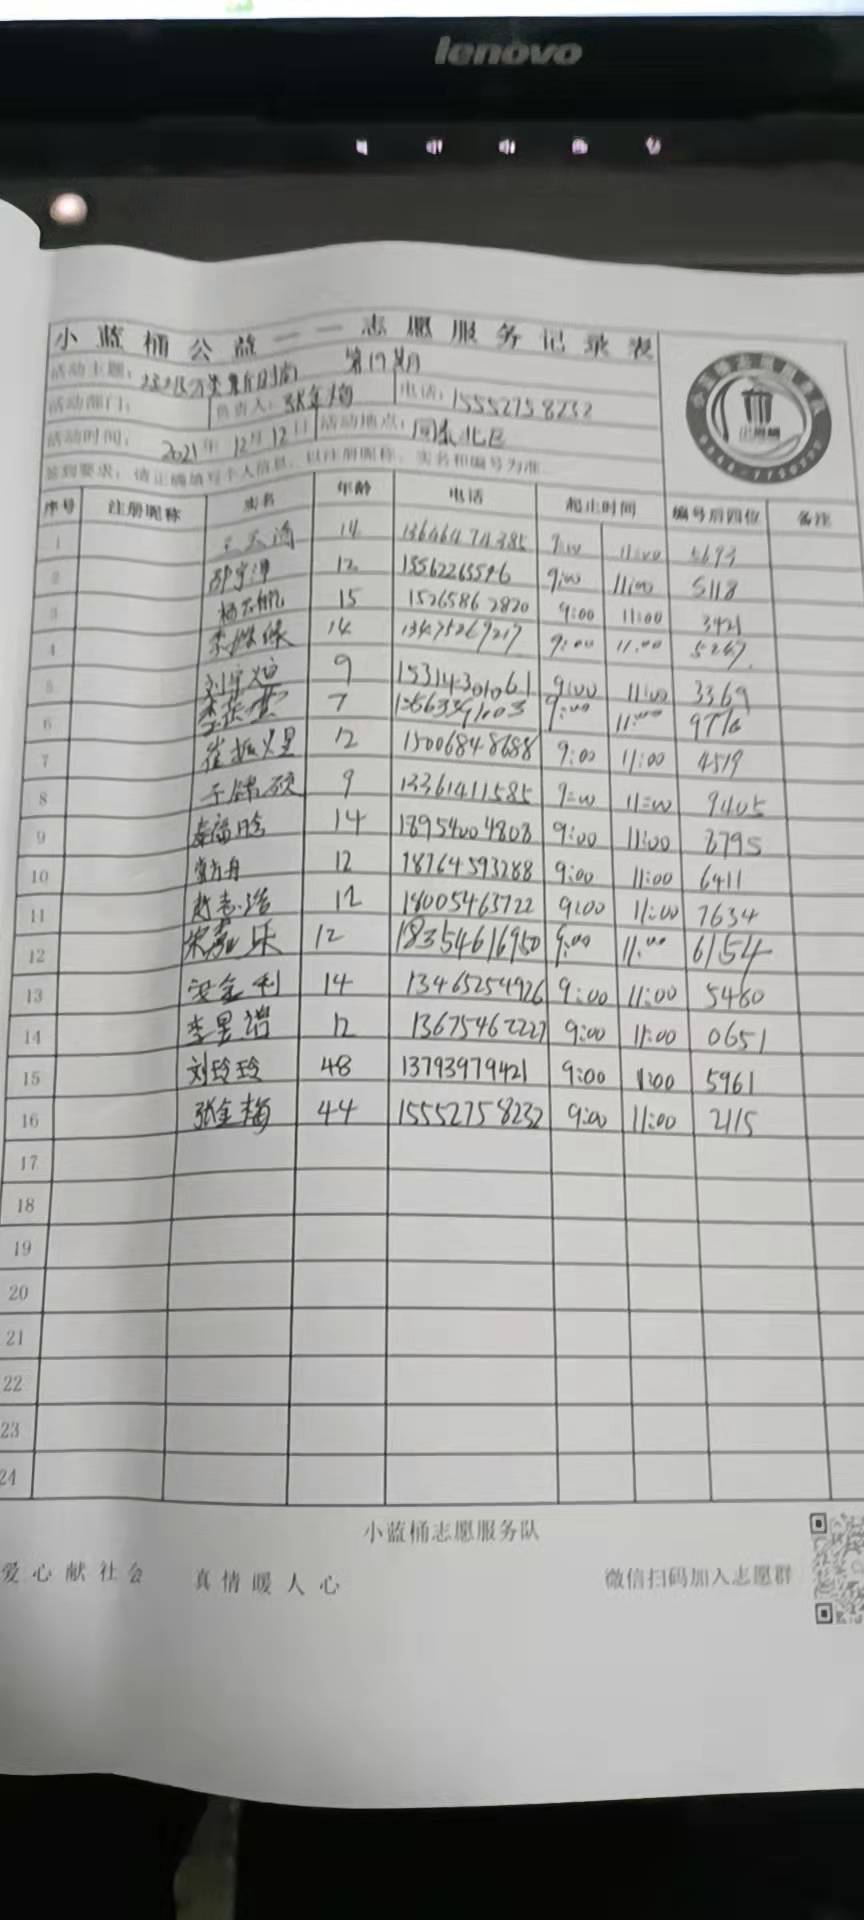 lenovo
小蓝桶公益——志愿服务记录表
活动主题： 第19期
活动部门： 负责人：张金梅 电话：15552758232
活动时间： 2021年12月12日 活动地点： 北区
签到要求：请正确填写个人信息，以注册昵称、实名和编号为准。
序号 注册昵称 实名 年龄 电话 起止时间 编号后四位 备注
1 14 13646474385 9:00 11:00 5693
2 12 15562265596 9:00 11:00 5118
3 15 15265862820 9:00 11:00 3421
4 14 13475269217 9:00 11:00 5267
5 9 15314301061 9:00 11:00 3369
6 7 9:00 11:00
7 12 15006848688 9:00 11:00 4519
8 9 13361411585 9:00 11:00 9405
9 秦福晗 14 18954004808 9:00 11:00 3795
10 12 18764593288 9:00 11:00 6411
11 赵志浩 12 18005463722 9:00 11:00 7634
12 宋嘉乐 12 18354616950 9:00 11:00 6154
13 安金利 14 13465254926 9:00 11:00 5460
14 李昱诺 12 13675462227 9:00 11:00 0651
15 刘玲玲 48 13793979421 9:00 11:00 5961
16 张金梅 44 15552758232 9:00 11:00 2115
17
18
19
20
21
22
23
24
小蓝桶志愿服务队
爱心献社会 真情暖人心 微信扫码加入志愿群